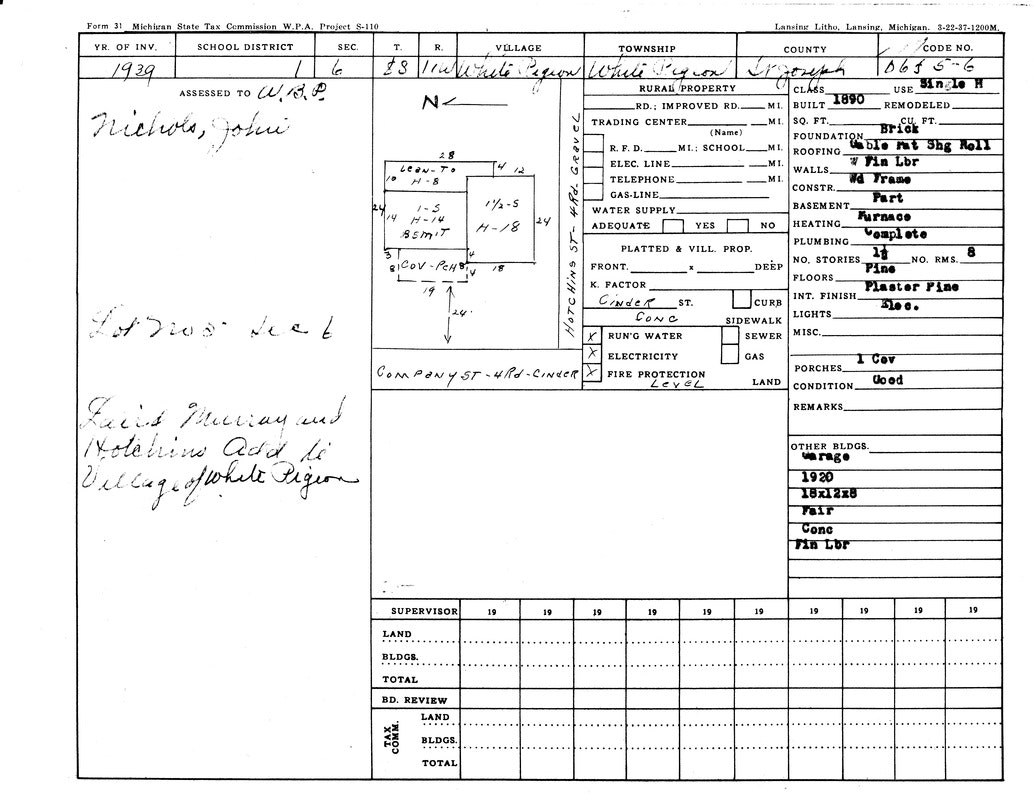 Form 31 Michigan State Tax Commission W.P.A. Project S-110
Lansing Litho, Lansing, Michigan. 3-22-37-1200M.
YR. OF INV. SCHOOL DISTRICT SEC. T. R. VILLAGE TOWNSHIP COUNTY CODE NO.
1939 1 6 8S 11W White Pigeon White Pigeon St Joseph 5-6
ASSESSED TO W.B.P.
Nichols, John
Lot No 5 Sec 6
Laird Murray and
Hotchins Add to
Village of White Pigeon
N
28
4 12
LEAN-TO
H-8
10
24
14
1-S
H-14
BSMIT
1 1/2-S
H-18
24
3
4
8
COV-PCH
8
4
18
19
24
HOTCHINS ST-4Rd-GRAVEL
COMPANY ST-4Rd-CINDER
RURAL PROPERTY
RD.; IMPROVED RD. MI.
TRADING CENTER MI.
(Name)
R. F. D. MI.; SCHOOL MI.
ELEC. LINE MI.
TELEPHONE MI.
GAS-LINE
WATER SUPPLY
ADEQUATE YES NO
PLATTED & VILL. PROP.
FRONT. x DEEP
K. FACTOR
CINDER ST. CURB
CONC SIDEWALK
X RUN'G WATER SEWER
X ELECTRICITY GAS
X FIRE PROTECTION
LEVEL LAND
CLASS USE Single H
BUILT 1890 REMODELED
SQ. FT. CU. FT.
FOUNDATION Brick
ROOFING Gable Pat Shg Roll
WALLS Fin Lbr
CONSTR. Wd Frame
BASEMENT Part
HEATING Furnace
PLUMBING Complete
NO. STORIES 1½ NO. RMS. 8
FLOORS Pine
INT. FINISH Plaster Pine
LIGHTS Elec.
MISC.
PORCHES 1 Cov
CONDITION Good
REMARKS
OTHER BLDGS.
Garage
1920
18x12x8
Fair
Conc
Fin Lbr
SUPERVISOR 19 19 19 19 19 19 19 19 19 19
LAND
BLDGS.
TOTAL
BD. REVIEW
TAX COMM.
LAND
BLDGS.
TOTAL